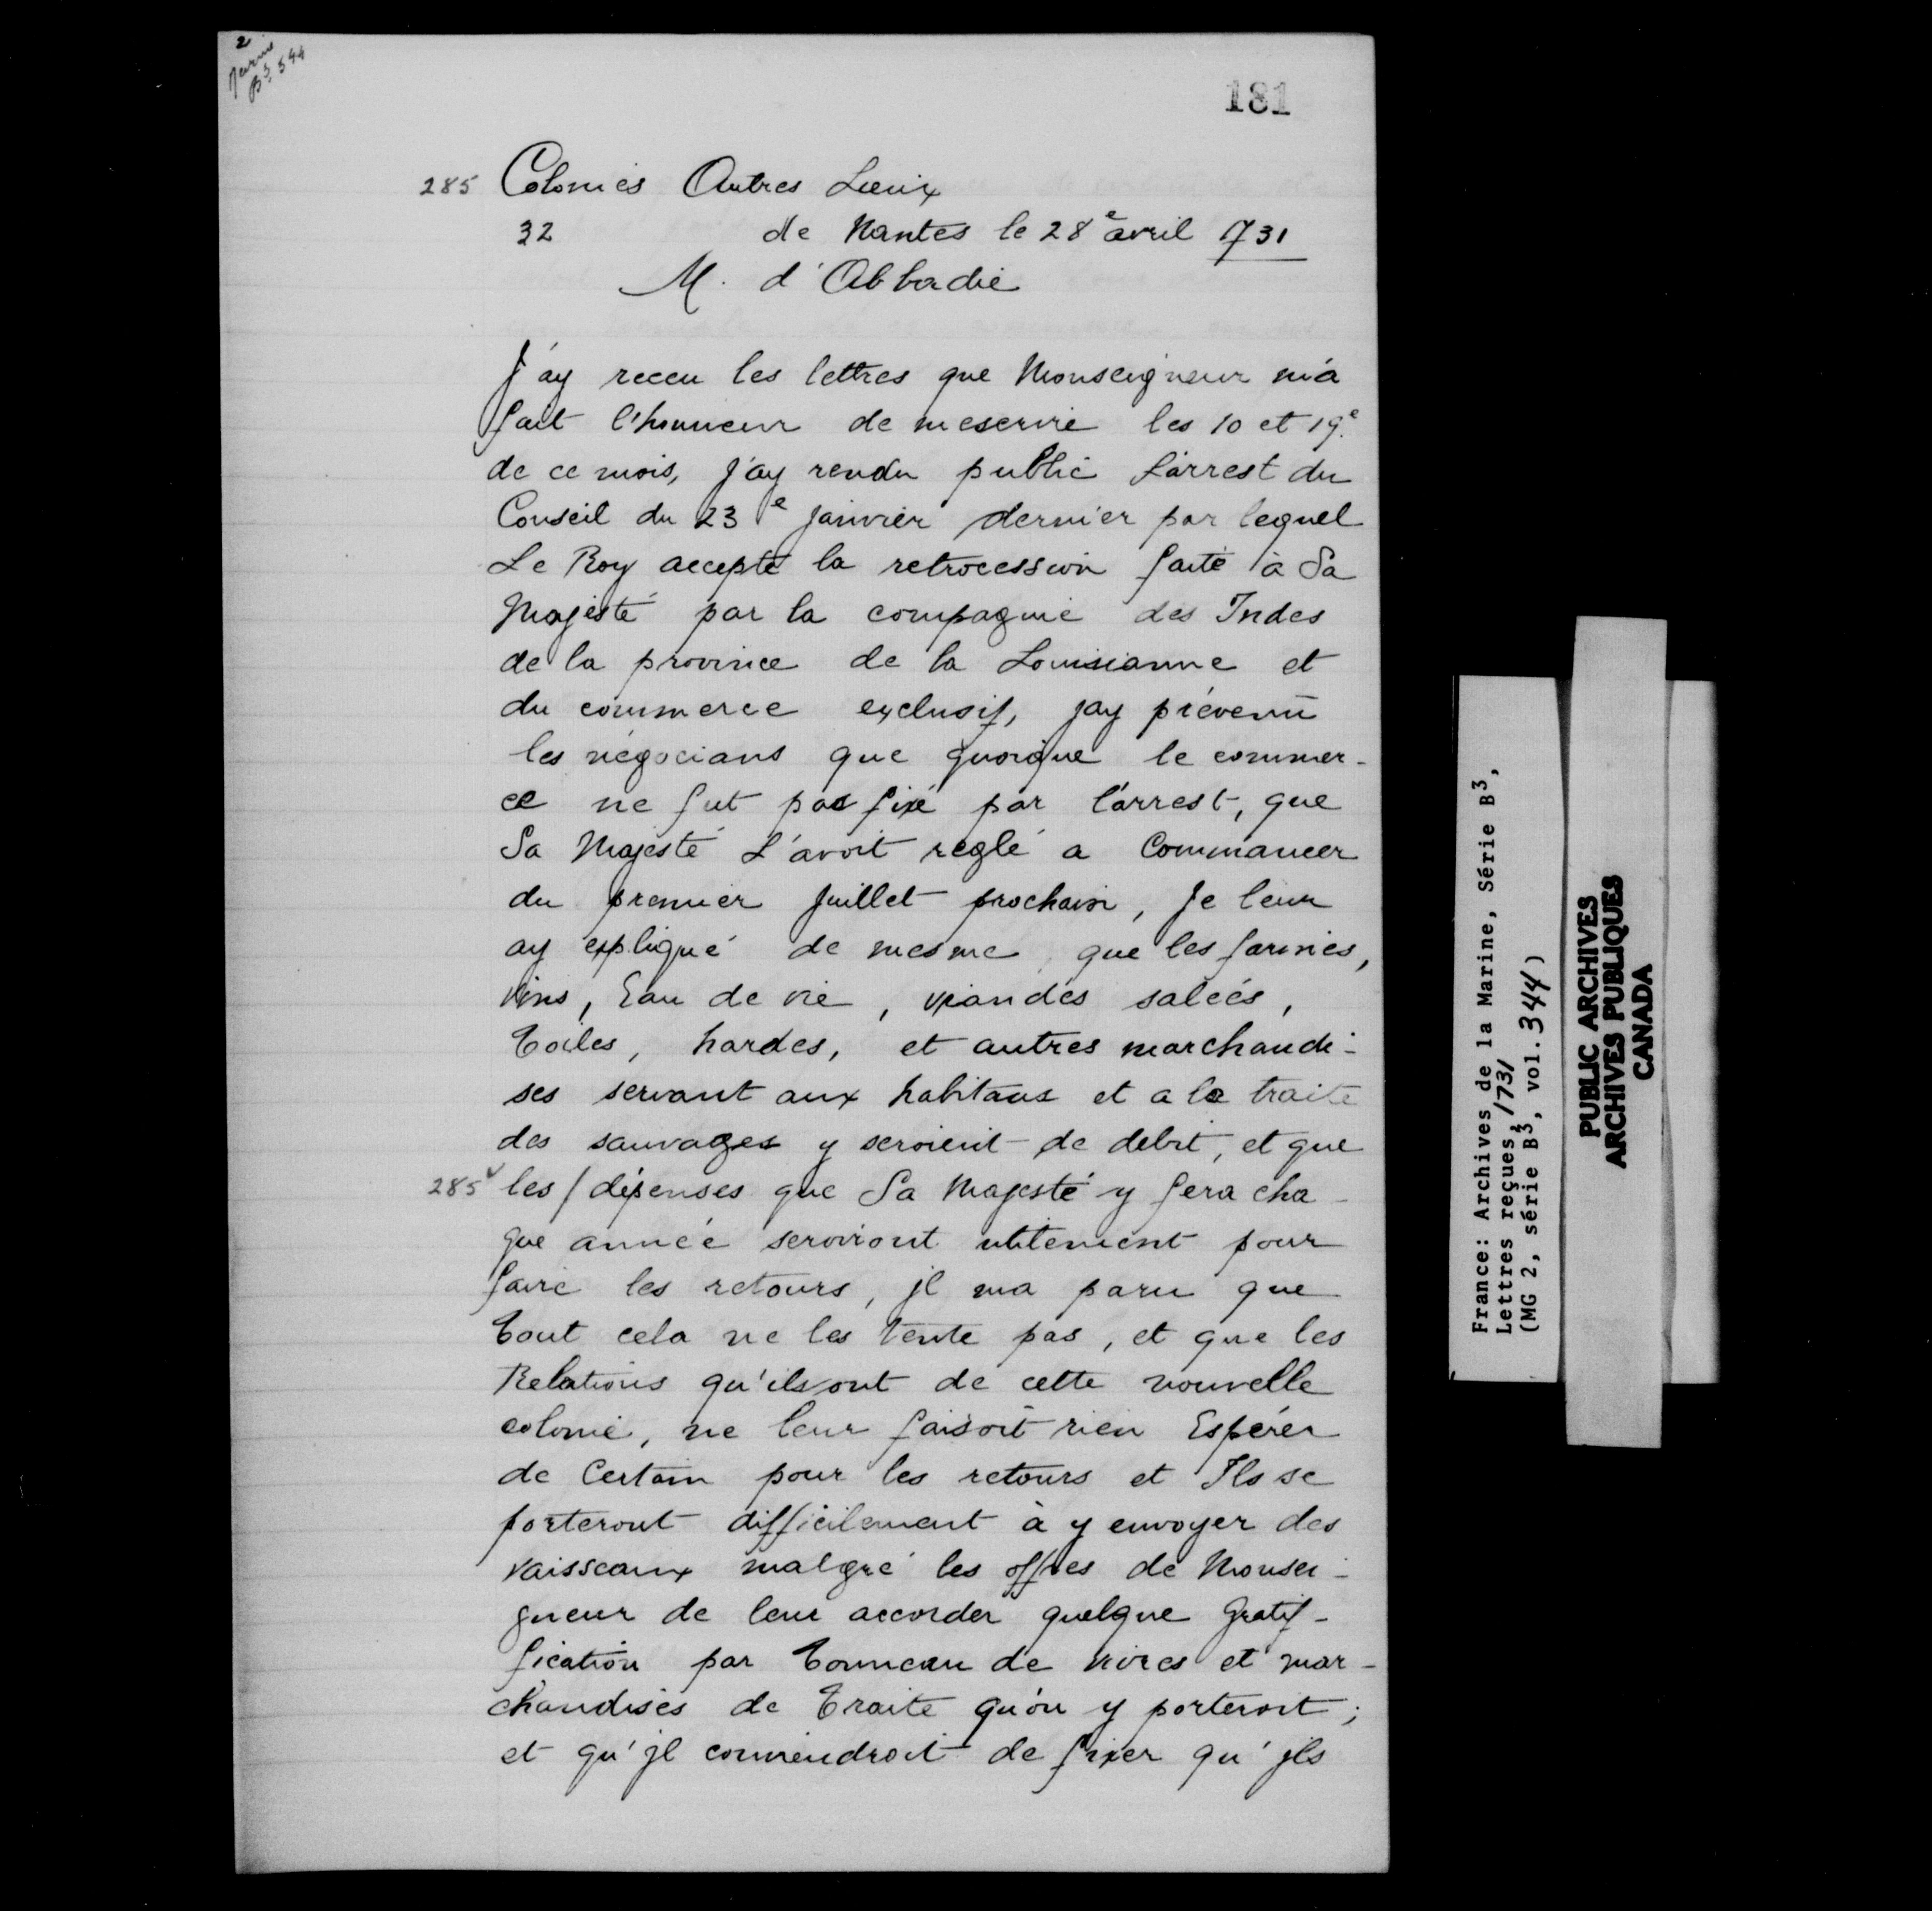 2
Marine
B3. 344
181
285 Colonies Autres Lieux
32 de Nantes le 28e avril 1731
M. d'Abbadie
J'ay receu les lettres que Monseigneur m'a
fait l'honneur de mescrire les 10 et 19e.
de ce mois, j'ay rendu public l'arrest du
Conseil du 23e janvier dernier par lequel
Le Roy accepte la retrocession faite à Sa
Majesté par la compagnie des Indes
de la province de la Louisianne et
du commerce exclusif, jay prévenu
les négocians que quoique le commer-
ce ne fut pas fixé par l'arrest, que
Sa Majesté L'avoit reglé a Commancer
du premier juillet prochain, Je leur
ay expliqué de mesme que les farines,
Vins, Eau de vie, viandes salées,
toiles, hardes, et autres marchandi-
ses servant aux habitans et a la traite
des sauvages y seroient de debit, et que
285v les / dépenses que Sa Majesté y fera cha-
que année serviront utilement pour
faire les retours, jl ma paru que
tout cela ne les tente pas, et que les
Relations qu'ils ont de cette nouvelle
colonie, ne leur faisoit rien Espérer
de Certain pour les retours et Ils se
porteront difficilement à y envoyer des
vaisseaux malgré les offres de Monsei-
gneur de leur accorder quelque gratif-
fication par tonneau de vivres et mar-
chandises de traite qu'on y porteroit;
et qu'jl conviendroit de fixer qu'jls
France: Archives de la Marine, Série B3,
Lettres reçues, 1731
(MG 2, série B3, vol. 344)
PUBLIC ARCHIVES
ARCHIVES PUBLIQUES
CANADA